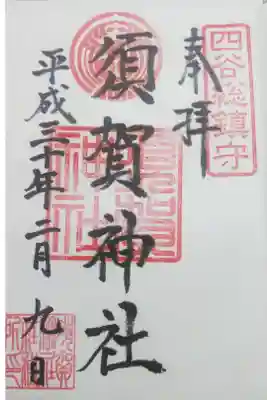 四谷総鎮守
奉拝
須賀神社
平成三十年二月九日